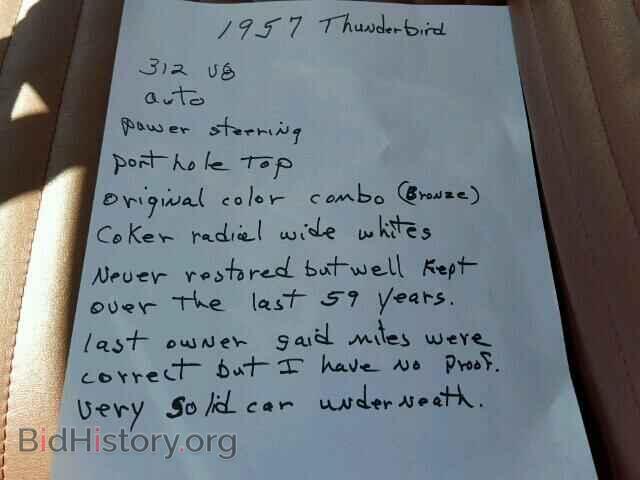 1957 Thunderbird
312 V8
auto
power steering
port hole Top
original color combo (Bronze)
Coker radial wide whites
Never restored but well kept
over the last 59 years.
last owner said miles were
correct but I have no proof.
very solid car underneath.
BidHistory.org